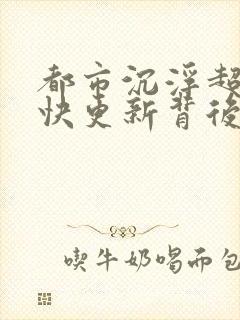 都市沉浮超
快更新背後
喫牛奶喝面包